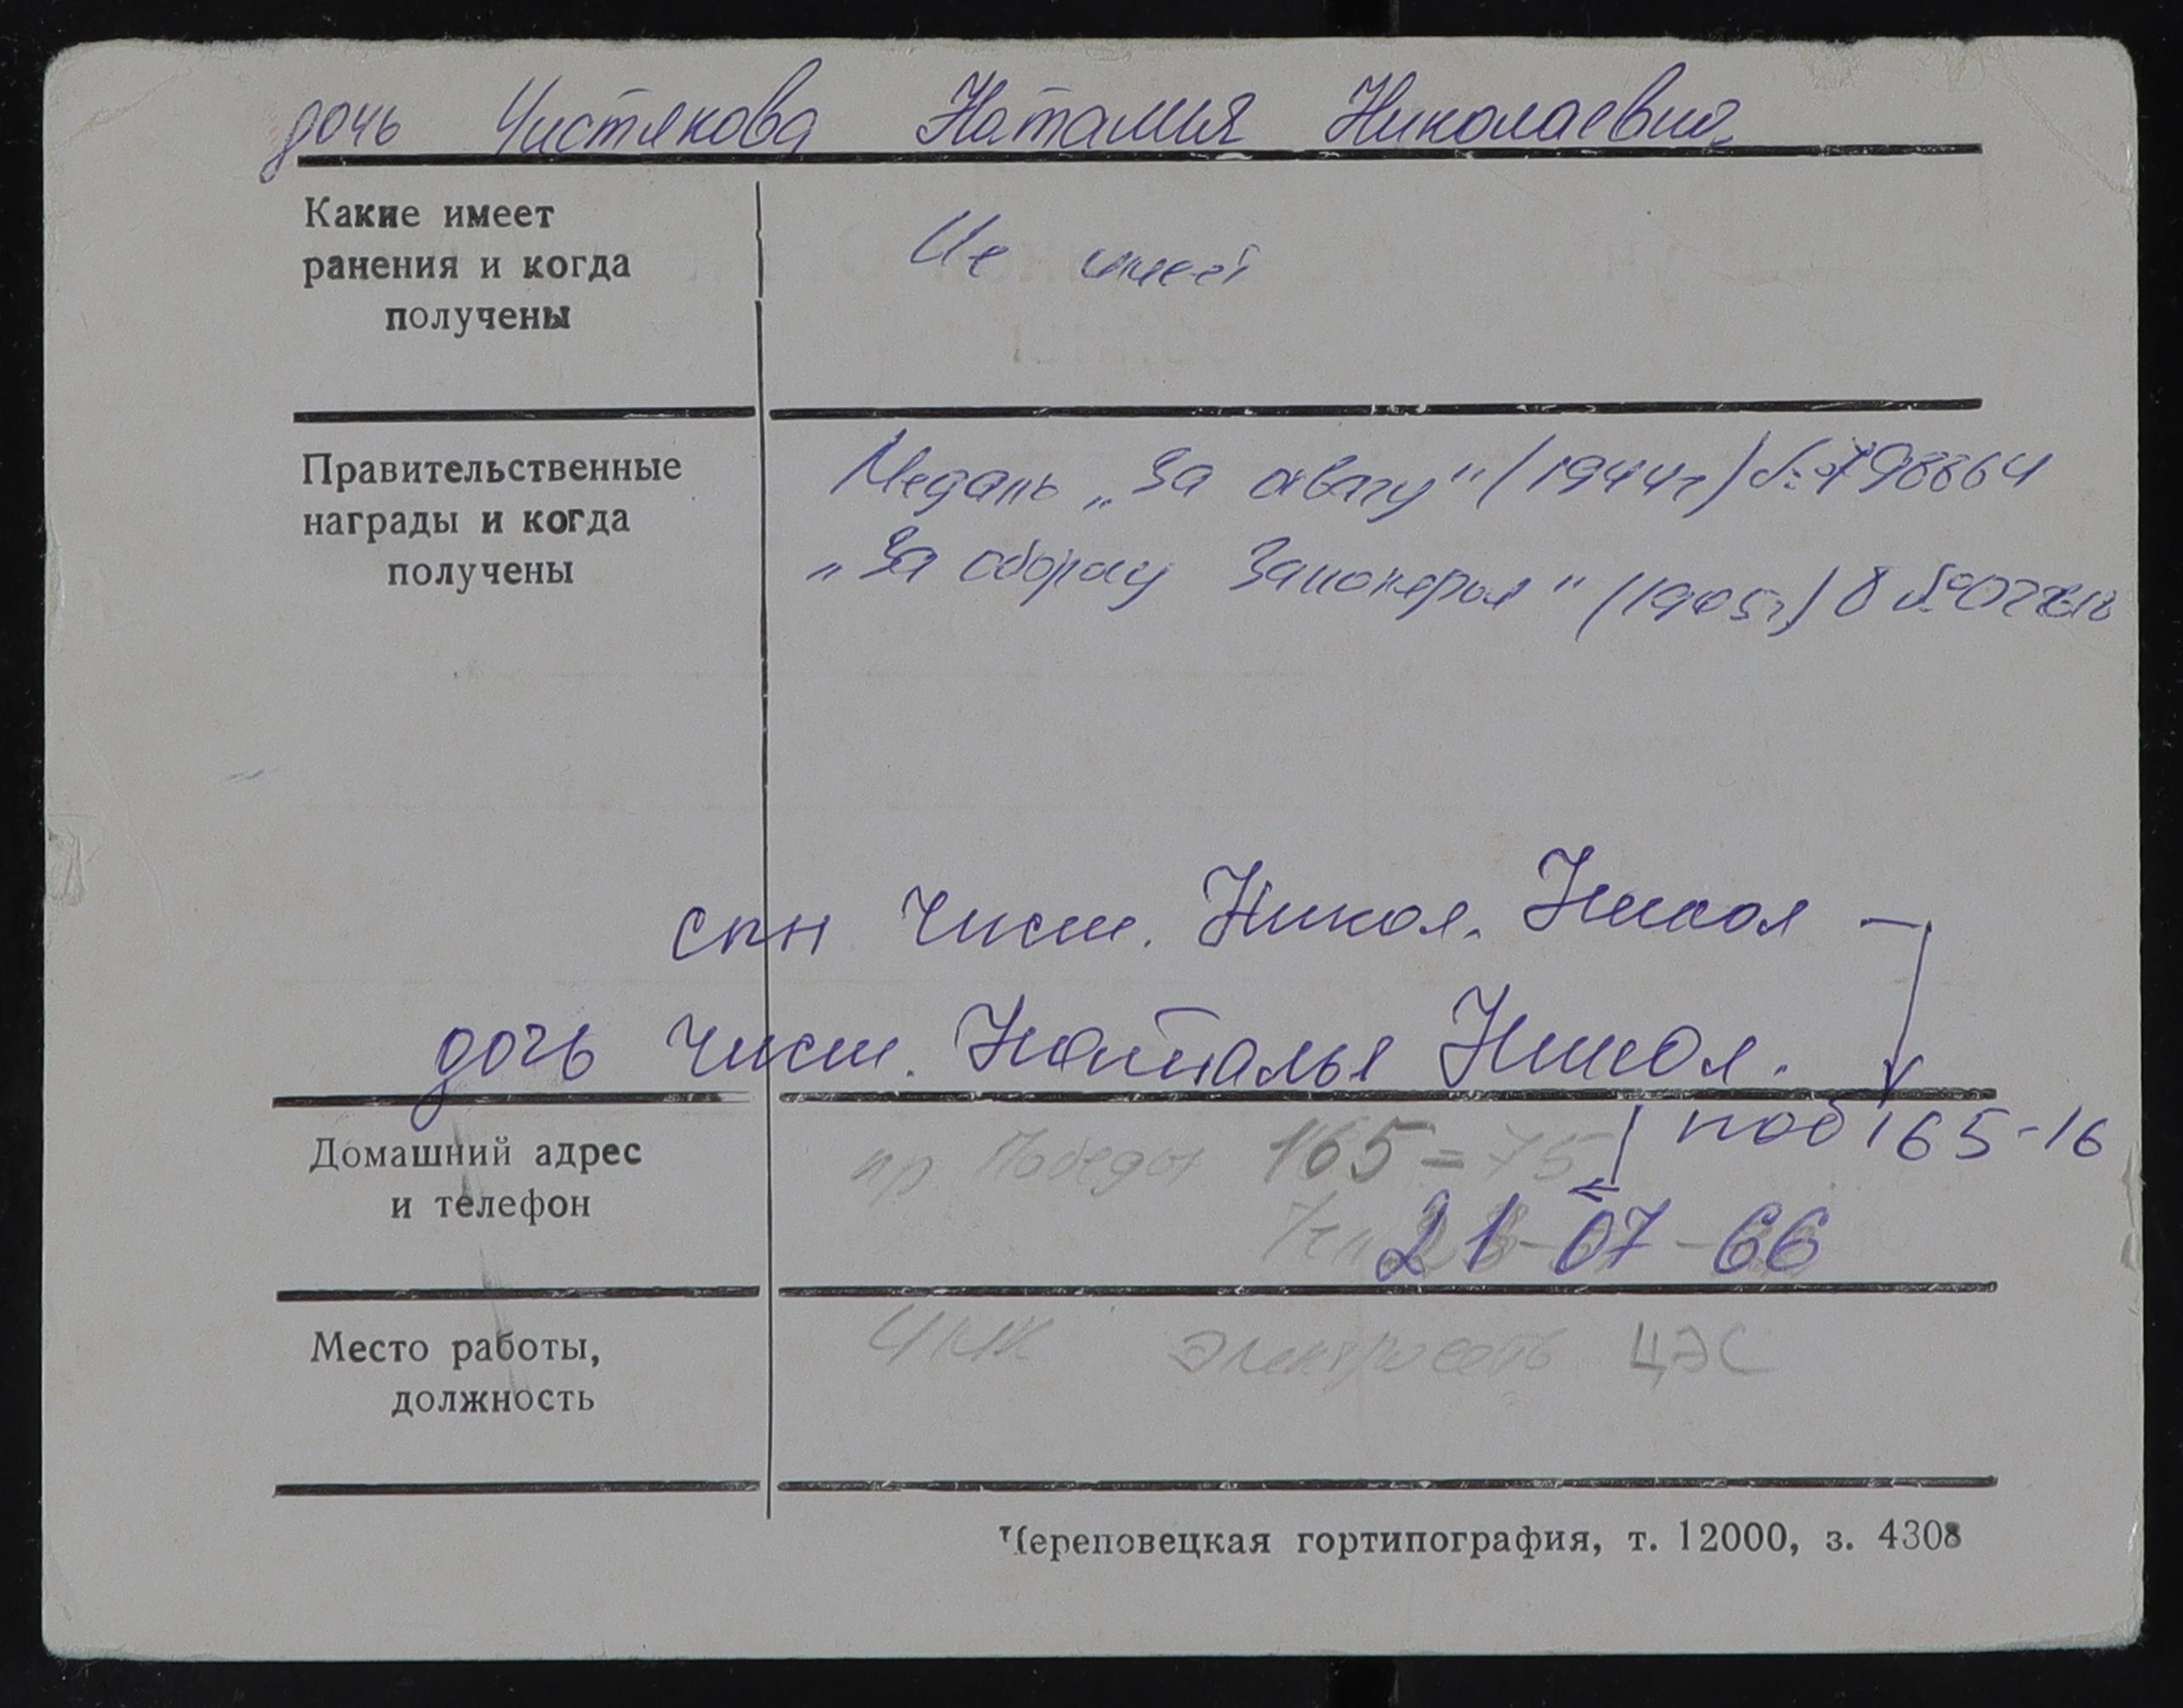 дочь Чистякова Наталия Николаевна
Какие имеет
ранения и когда
получены
Не имеет
Правительственные
награды и когда
получены
Медаль „За отвагу" (1944г)
„За оборону Заполярья" (1945г)
сын Чист. Никол. Никол
дочь Чист. Наталья Никол.
Домашний адрес
и телефон
пр Победы 165-75
поб 165-16
21-07-66
Место работы,
должность
ЧМК электросеть ЦЭС
Череповецкая гортипография, т. 12000, з. 4308